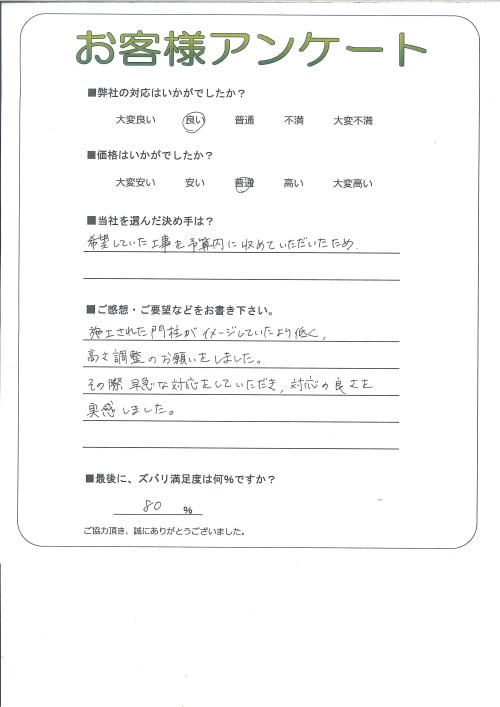 お客様アンケート
■弊社の対応はいかがでしたか？
大変良い 良い 普通 不満 大変不満
■価格はいかがでしたか？
大変安い 安い 普通 高い 大変高い
■当社を選んだ決め手は？
希望していた工事を予算内に収めていただいたため.
■ご感想・ご要望などをお書き下さい。
施工された門柱がイメージしていたより低く,
高さ調整のお願いをしました。
その際 早急な対応をしていただき, 対応の良さを
実感しました。
■最後に、ズバリ満足度は何％ですか？
80 ％
ご協力頂き、誠にありがとうございました。